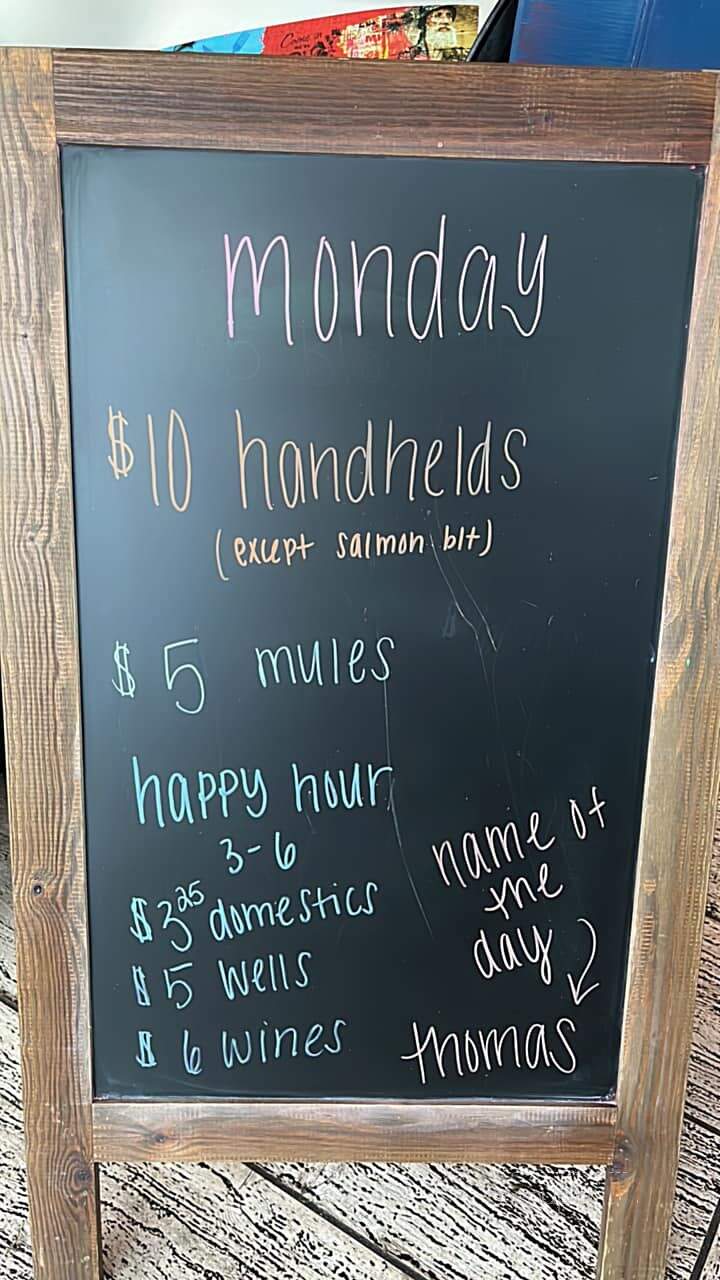 monday
$10 handhelds
(except salmon blt)
$5 mules
happy hour
3-6
$3²⁵ domestics
$5 wells
$6 wines
name of
the
day
thomas